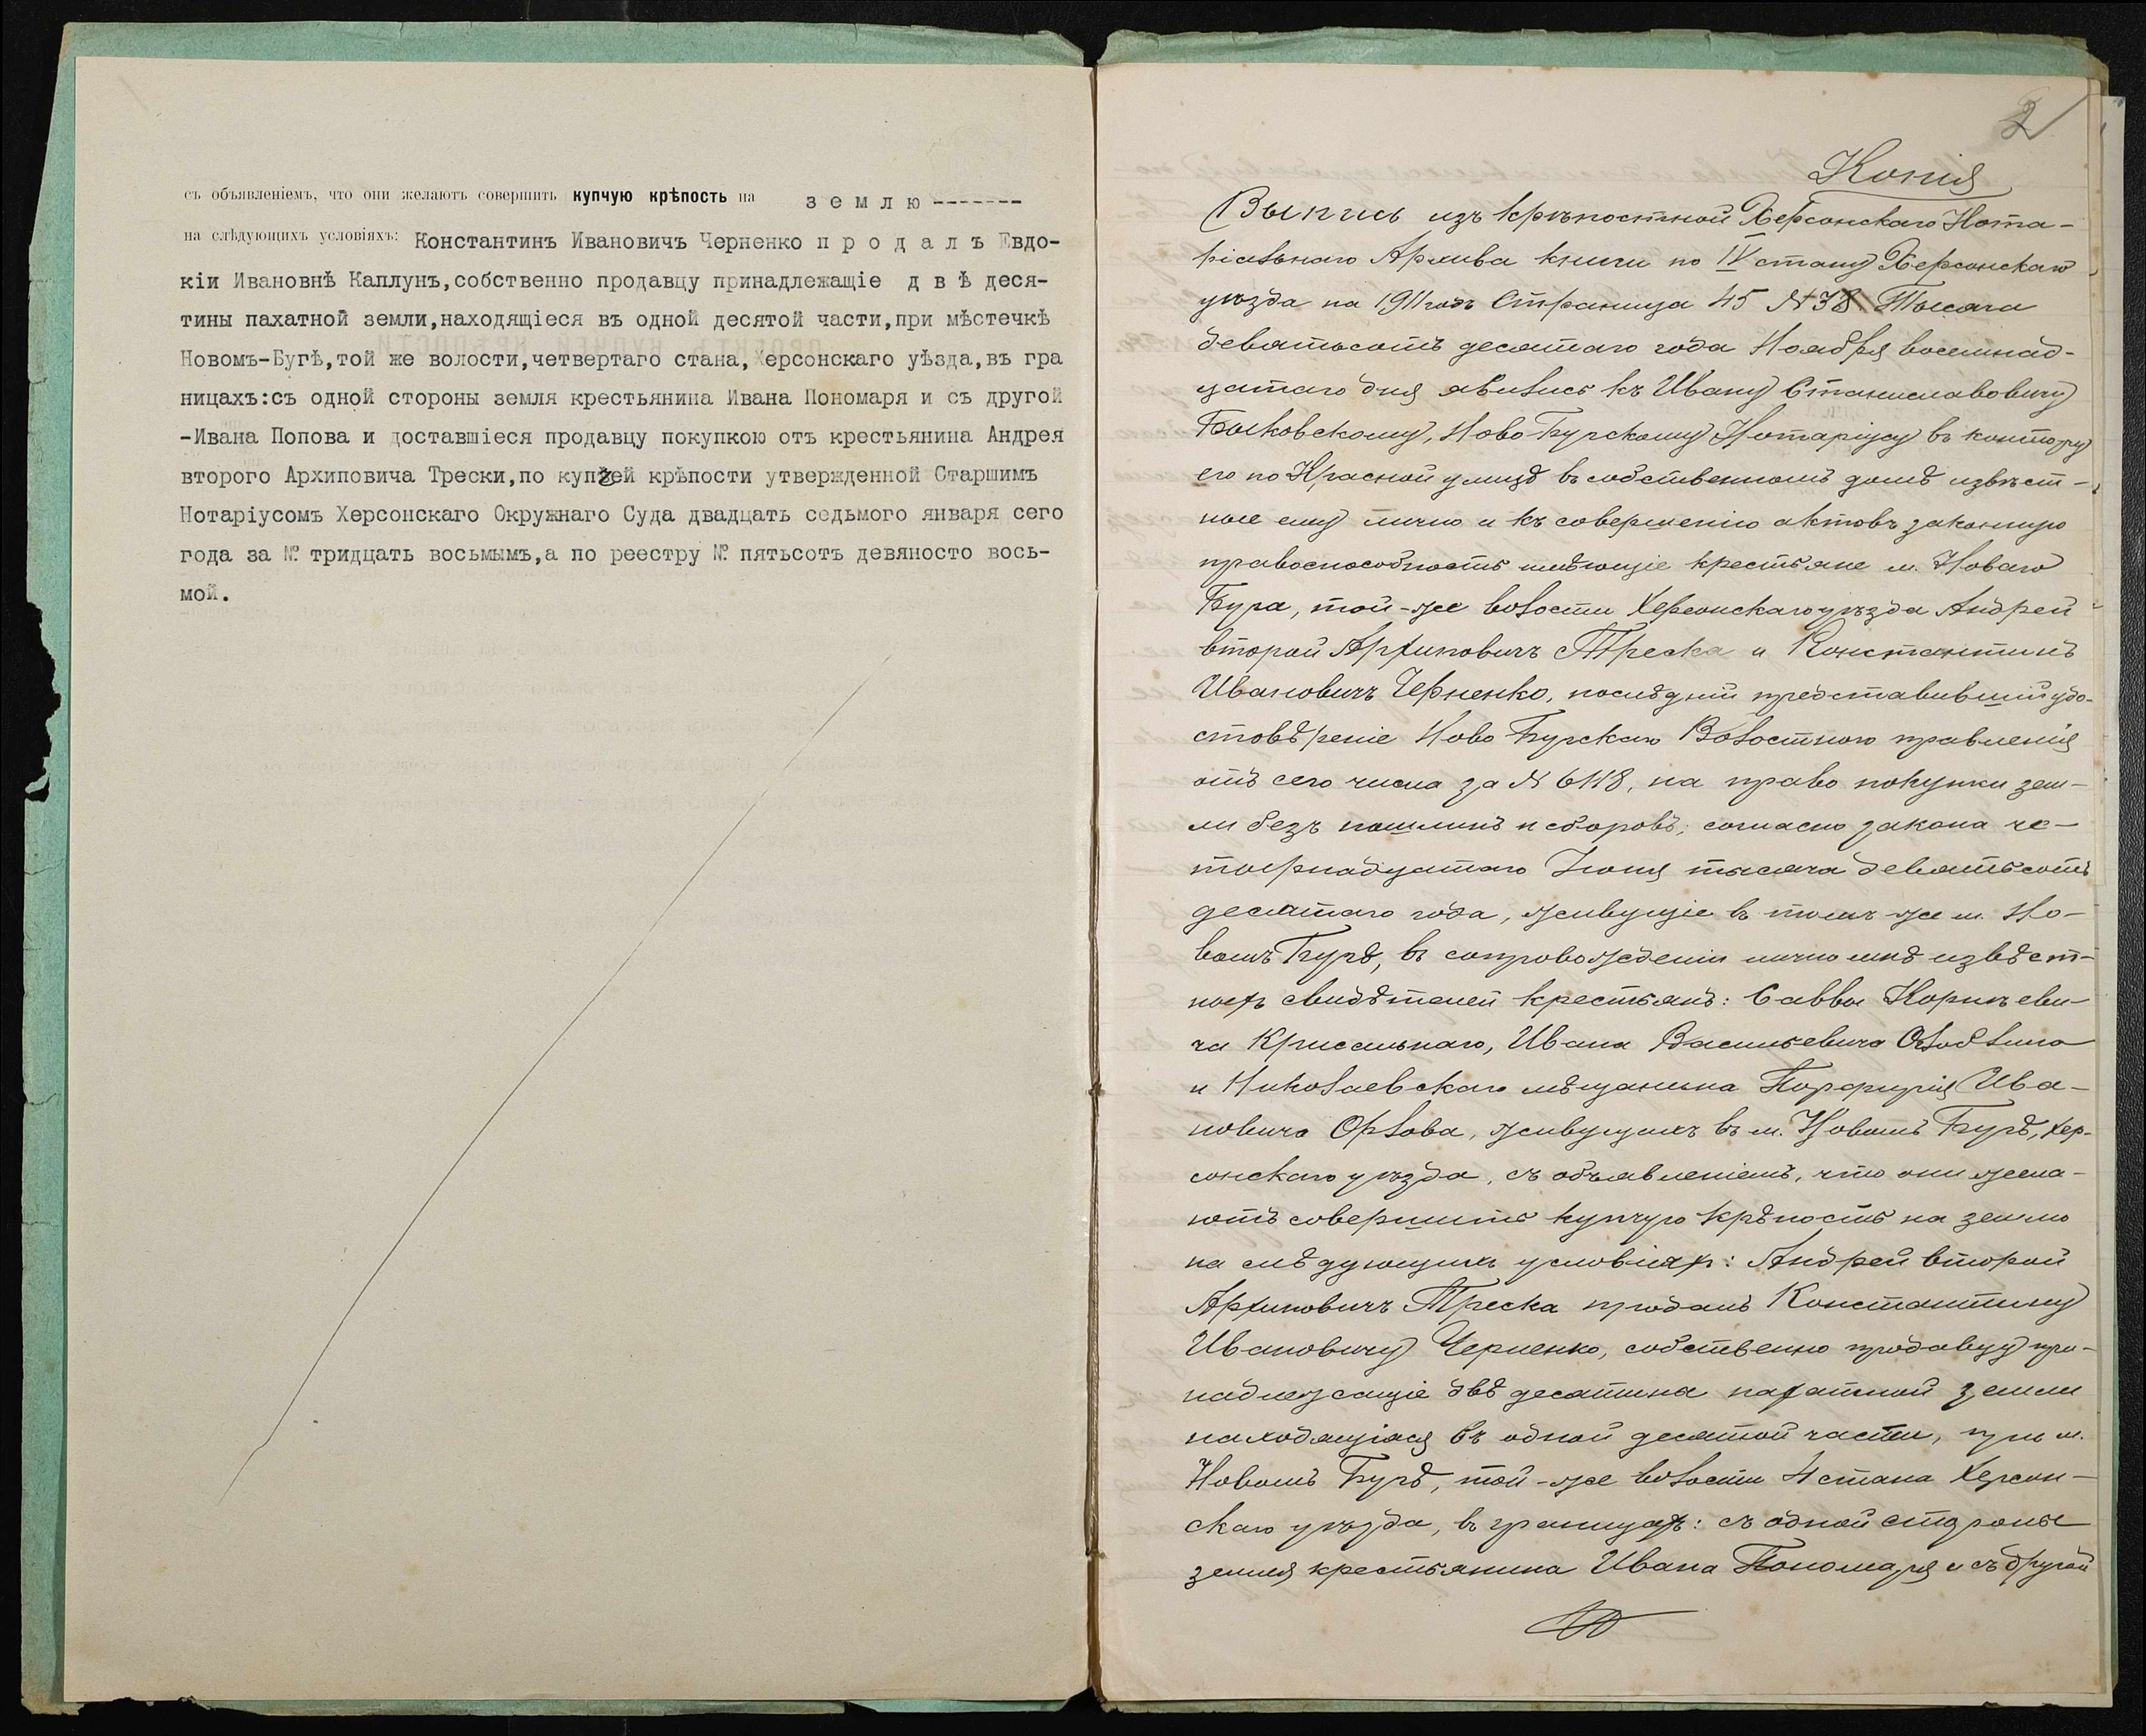 съ объявленіемъ, что они желаютъ совершить купчую крѣпость на з е м л ю -------
на слѣдующихъ условіяхъ: Константинъ Ивановичъ Черненко п р о д а л ъ Евдо-
кіи Ивановнѣ Каплунъ,собственно продавцу принадлежащіе д в ѣ деся-
тины пахатной земли,находящіеся въ одной десятой части,при мѣстечкѣ
Новомъ-Бугѣ,той же волости,четвертаго стана,Херсонскаго уѣзда,въ гра
ницахъ:съ одной стороны земля крестьянина Ивана Пономаря и съ другой
-Ивана Попова и доставшіеся продавцу покупкою отъ крестьянина Андрея
второго Архиповича Трески,по купчей крѣпости утвержденной Старшимъ
Нотаріусомъ Херсонскаго Окружнаго Суда двадцать седьмого января сего
года за № тридцать восьмымъ,а по реестру № пятьсотъ девяносто вось-
мой.
2
Копія
Выпись изъ крѣпостной Херсонскаго Нота-
ріальнаго Архива книги по IV стану Херсонскаго
уѣзда на 1911 годъ Страница 45 № 38 Тысяча
девятьсотъ десятаго года Ноября восемнад-
цатаго дня явились къ Ивану Станиславовичу
Быковскому, Ново-Бугскому Нотаріусу въ контору
его по Красной улицѣ въ собственномъ домѣ извѣст-
ные ему лично и къ совершенію актовъ законную
правоспособность имѣющіе крестьяне м. Новаго
Буга, той-же волости Херсонскаго уѣзда Андрей
второй Архиповичъ Треска и Константинъ
Ивановичъ Черненко, послѣдній представившій удо-
стовѣреніе Ново Бугскаго Волостного правленія
отъ сего числа за № 6118, на право покупки зем-
ли безъ пошлинъ и сборовъ, согласно закона че-
тырнадцатаго Іюня тысяча девятьсотъ
десятаго года, живущіе въ томъ-же м. Но-
вомъ Бугѣ, въ сопровожденіи лично мнѣ извѣст-
ныхъ свидѣтелей крестьянъ: Саввы Корнѣеви-
ча, Ивана Васильевича
и Николаевскаго мѣщанина Порфирія Ива-
новича Орлова, живущихъ въ м. Новомъ Бугѣ, Хер-
сонскаго уѣзда, съ объявленіемъ, что они жела-
ютъ совершить купчую крѣпость на землю
на слѣдующихъ условіяхъ: Андрей второй
Архиповичъ Треска продалъ Константину
Ивановичу Черненко, собственно продавцу при-
надлежащіе двѣ десятины пахатной земли
находящіяся въ одной десятой части, при м.
Новомъ Бугѣ, той-же волости 4 стана Херсон-
скаго уѣзда, въ границахъ: съ одной стороны
земля крестьянина Ивана Пономаря и съ другой